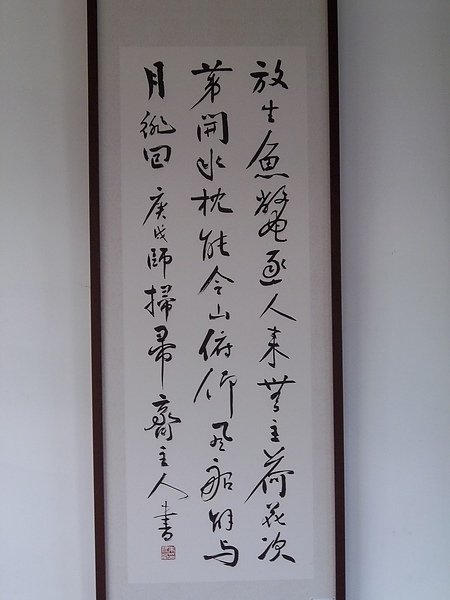 放生魚鱉逐人来無主荷花次
第開水枕能令山俯仰風船解与
月徘回 庚戌師掃帚齋主人書